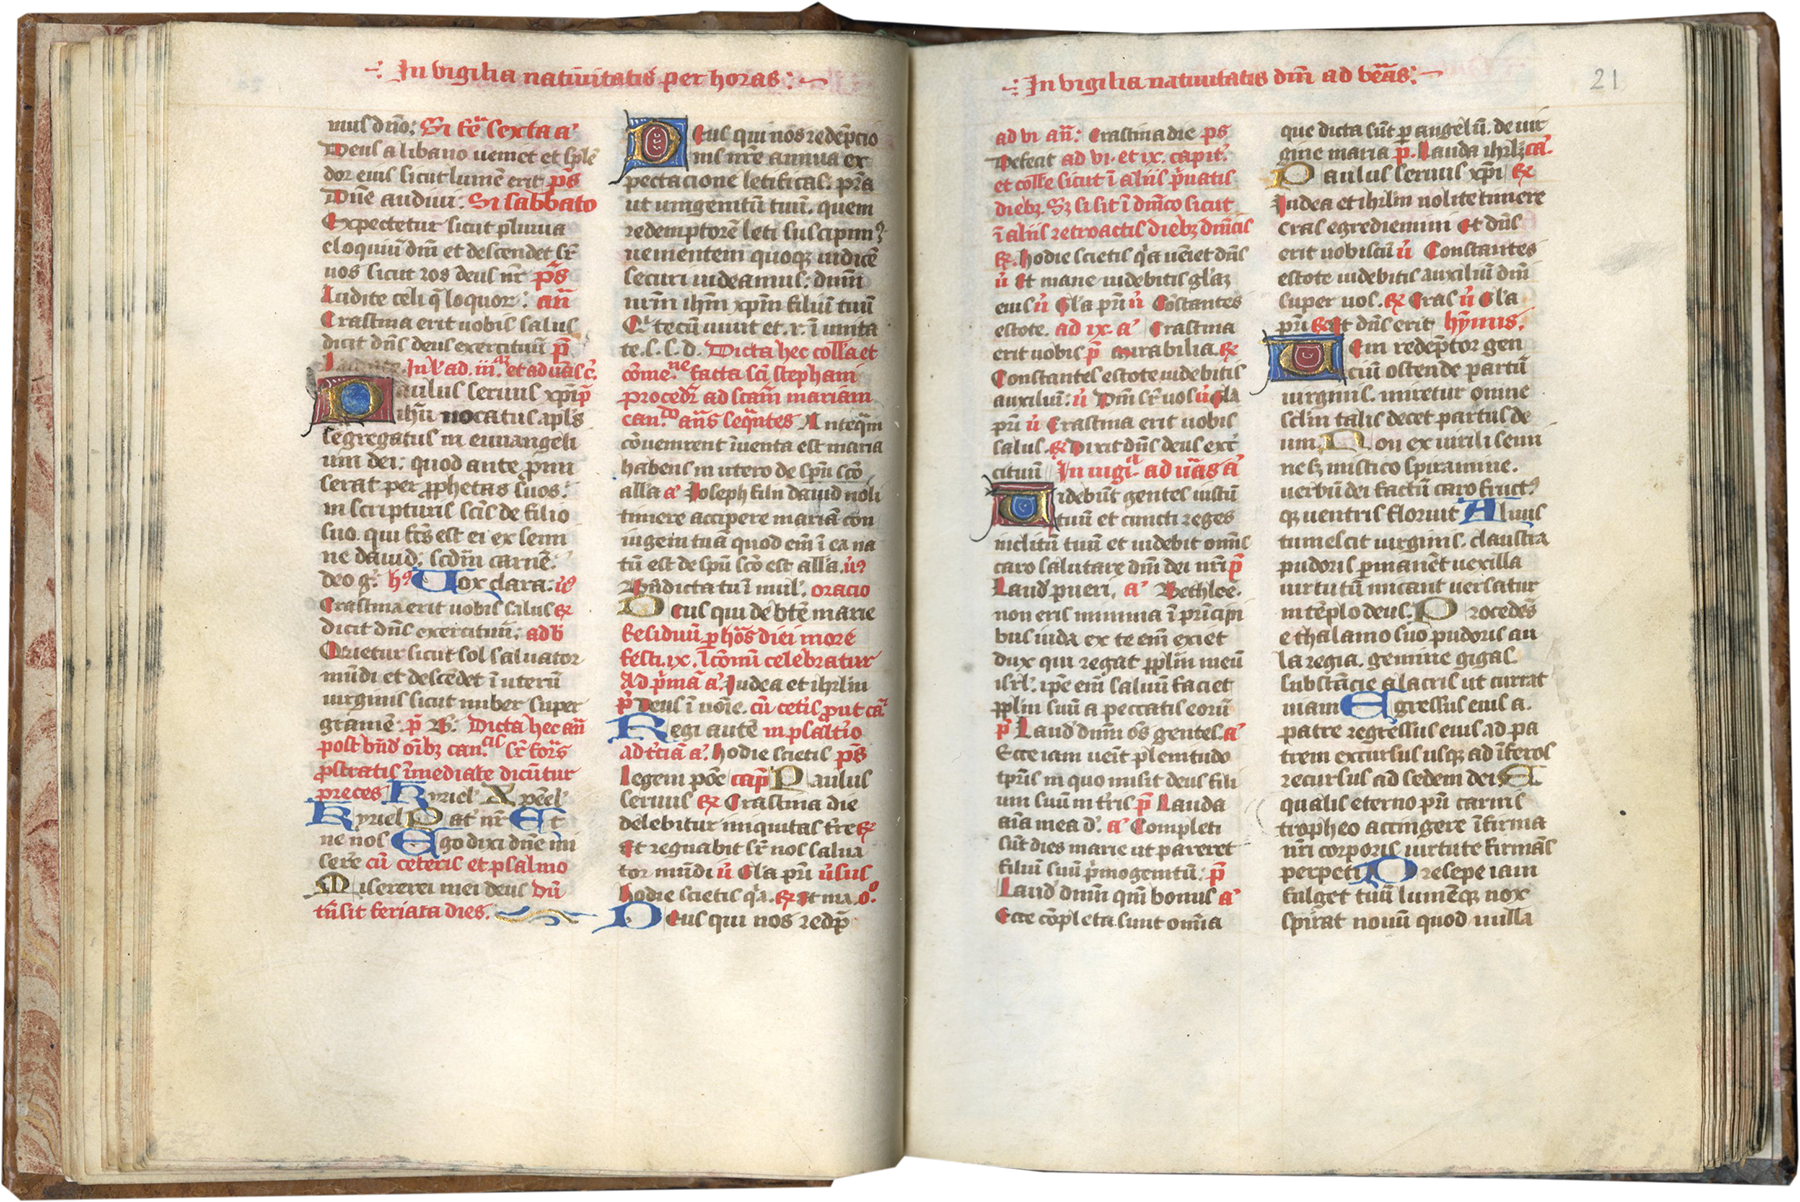 In vigilia natiuitatis per horas
mus dn̄o: Si fẽ sexta a͛
Deus a libano ueniet et splē
dor eius sicut lumē erit p̄s
Dn̄e audiui. Si sabbato
Expectetur sicut pluuia
eloquiū dn̄i et descendet sr̄
uos sicut ros deus nr̄ p̄s
Audite celi q̄ loquor. an̄
Crastina erit uobis salus
dicit dn̄s deus exercituū p̄
In l' ad. iii. et ad uās c̄.
Paulus seruus xp̄i p̄
ih̄u uocatus apl̄s
segregatus in euuangeli
um dei: quod ante p̄mi
serat per prophetas suos.
in scripturis sc̄is de filio
suo. qui fc̄s est ei ex semi
ne dauid: scdm̄ carnē.
deo gr̄. h9 Uox clara. u9
Crastina erit uobis salus ℟
dicit dn̄s exercituū: ad b
Orietur sicut sol saluator
mūdi et descēdet ī uterū
uirginis sicut imber super
gramē. p̄ B. Dicta hec an̄
post bn̄d oīb3 can. sr̄ for̄s
p̄stratis īmediate dicūtur
preces Kyriel' Xp̄el'
Kyriel' Pat' nr̄ Et
ne nos Ego dixi dn̄e mi
sere cū ceteris et psalmo
Miserere mei deus dū
tn̄sit feriata dies.
Deus qui nos redēpcio
nis nr̄e annua ex
pectacione letificas: pr̄a
ut unigenitū tuū. quem
redemptorē leti suscipim9
uenientem quoq3 iudicē
securi uideamus: dn̄m
nr̄m ih̄m xp̄m filiū tuū
Q' tecū uiuit et. r. ī unita
te. s. s. d. Dicta hec coll'a et
cōme.ne facta sc̄i stephani
procedr̄ ad sc̄am mariam
can.do an̄s seq̄ntes Anteq̄m
cōuenirent īuenta est maria
habens in utero de sp̄u sc̄o
all'a a͛ Ioseph fili dauid noli
timere accipere mariā con
iugem tuā quod em̄ ī ea na
tū est de sp̄u sc̄o est all'a. u9
Bn̄dicta tu ī mul'. oracio
Deus qui de bt̄e marie
Residuū p hōs diei more
festi. ix. l'conū celebratur
Ad p̄mā a͛ Iudea et ihrl̄m
p̄ Deus ī noīe. cū cetis put ca
Regi autē in psal'tio
ad t'ciā a͛. hodie scietis p̄s
Legem pōe cap̄ Paulus
seruus ℟ Crastina die
delebitur iniquitas tr̄e ℟
Et regnabit sr̄ nos salua
tor mūdi u̇ Gl'a pr̄i u̇sus
hodie scietis q̄a. ℟ Et ma. o°
Deus qui nos redp̄
In vigilia natiuitatis dn̄i ad ve͛as:
21
ad vi an̄: Crastina die p̄s
Defecit ad vi. et ix. capit'.
et coll'e sicut ī aliis p̄uatis
dieb3. S3 si sit ī dn̄ico sicut
ī aliis retroactis dieb3 dn̄icis
℟. Hodie scietis q̄a ueniet dn̄s
u̇ Et mane uidebitis gl'az
eius u̇ Gl'a pr̄i u̇ Cōstantes
estote. ad ix. a͛ Crastina
erit uobis p̄ mirabilia. ℟
Constantes estote uidebitis
auxiliū: u̇ Dn̄i sr̄ uos u̇ Gl'a
pr̄i u̇ Crastina erit uobis
salus. ℟ Dixit dn̄s deus exer̄
cituū In uigi.a ad uās a͛
Uidebūt gentes iustū
tuū et cuncti reges
inclitū tuū et uidebit omīs
caro salutare dn̄i dei nr̄i p̄
Laud' pueri, a͛ Bethlee.
non eris minima ī principi
bus iuda ex te em̄ exiet
dux qui regat ppl'm meū
isrl'. ipe em̄ saluū faciet
ppl'm suū a peccatis eorū
p̄ Laud' dn̄m om̄s gentes. a͛
Ecce iam uenit plenitudo
tp̄ris in quo misit deus fili
um suū in tr̄is p̄ Lauda
aīa mea d'. a͛ Completi
sūt dies marie ut pareret
filiū suū p̄mogenitū: p̄
Laud' dn̄m qm̄ bonus a͛
Ecce cōpleta sunt omīa
que dicta sūt p angelū. de uir
gine maria p̄. Lauda ihrl̄3 ca.
Paulus seruus xp̄i ℟
Iudea et ihrl̄m nolite timere
cras egrediemini Et dn̄s
erit uobiscū u̇ Constantes
estote uidebitis auxiliū dn̄i
super uos. ℟ Cras u̇ Gl'a
pr̄i ℟ Et dn̄s erit hȳmis.
Ueni redēptor gen
ciū ostende partū
uirginis. miretur omne
sclm̄ talis decet partus de
um. Non ex uirili semi
ne s3 mistico spiramine.
uerbū dei factū caro fruct9
q3 uentris floruit Aluus
tumescit uirginis. claustra
pudoris p̄manēt uexilla
uirtutū micant uersatur
in tēplo deus. Procedēs
e thalamo suo pudoris au
la regia. gemine gigas
substācie alacris ut currat
uiam Egressus eius a.
patre regressus eius ad pa
trem excursus usq3 ad īferos
recursus ad sedem dei E
qualis eterno pr̄i carnis
tropheo accingere īfirma
nr̄i corporis uirtute firmās
perpeti Presepe iam
fulget tuū lumēq3 nox
spirat nouū quod nulla